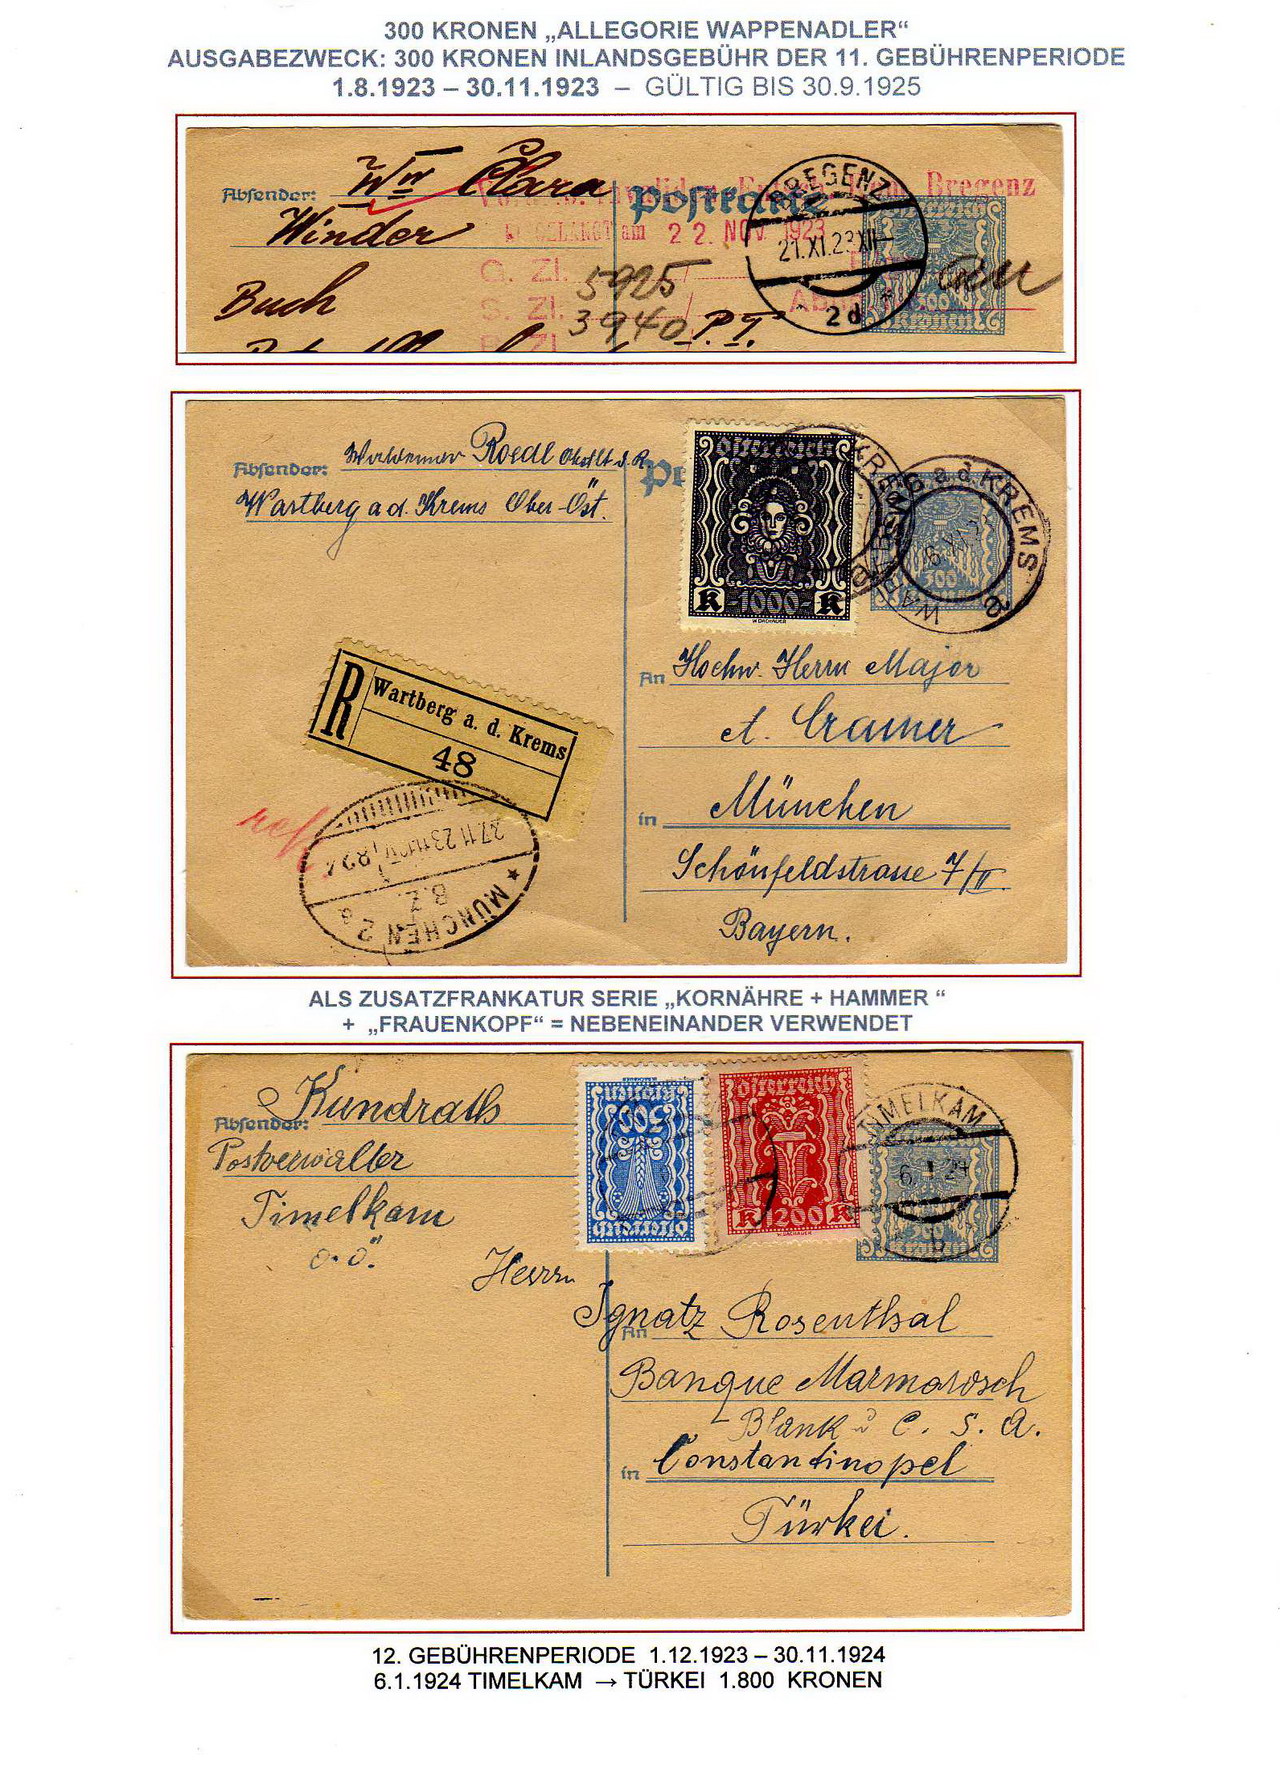 300 KRONEN „ALLEGORIE WAPPENADLER“
AUSGABEZWECK: 300 KRONEN INLANDSGEBÜHR DER 11. GEBÜHRENPERIODE
1.8.1923 – 30.11.1923 – GÜLTIG BIS 30.9.1925
Absender: Clara
Winder
Buch
Postkarte
Bregenz
am 22. NOV. 1923
G. Zl. 5925
S. Zl. 3940 P.T.
BREGENZ
21.XI.23
2d
Österreich
300
Kronen
Absender: Roedl
Wartberg a d. Krems Ober-Öst.
Österreich
K 1000 K
W. DACHAUER
WARTBERG a.d. KREMS
300
R
Wartberg a. d. Krems
48
MÜNCHEN 2
B.Z.
An Hochw. Herrn Major
A. Cramer
in München
Schönfeldstrasse 7/II.
Bayern.
ALS ZUSATZFRANKATUR SERIE „KORNÄHRE + HAMMER “
+ „FRAUENKOPF“ = NEBENEINANDER VERWENDET
Kundrath
Absender:
Postverwalter
Timelkam
O.Ö.
Österreich
Österreich
K 200 K
W. DACHAUER
TIMELKAM
6. I 24
b
Kronen
Herrn
Ignatz Rosenthal
An
Banque Marmorosch
Blank & C. S. A.
in Constantinopel
Türkei.
12. GEBÜHRENPERIODE 1.12.1923 – 30.11.1924
6.1.1924 TIMELKAM → TÜRKEI 1.800 KRONEN